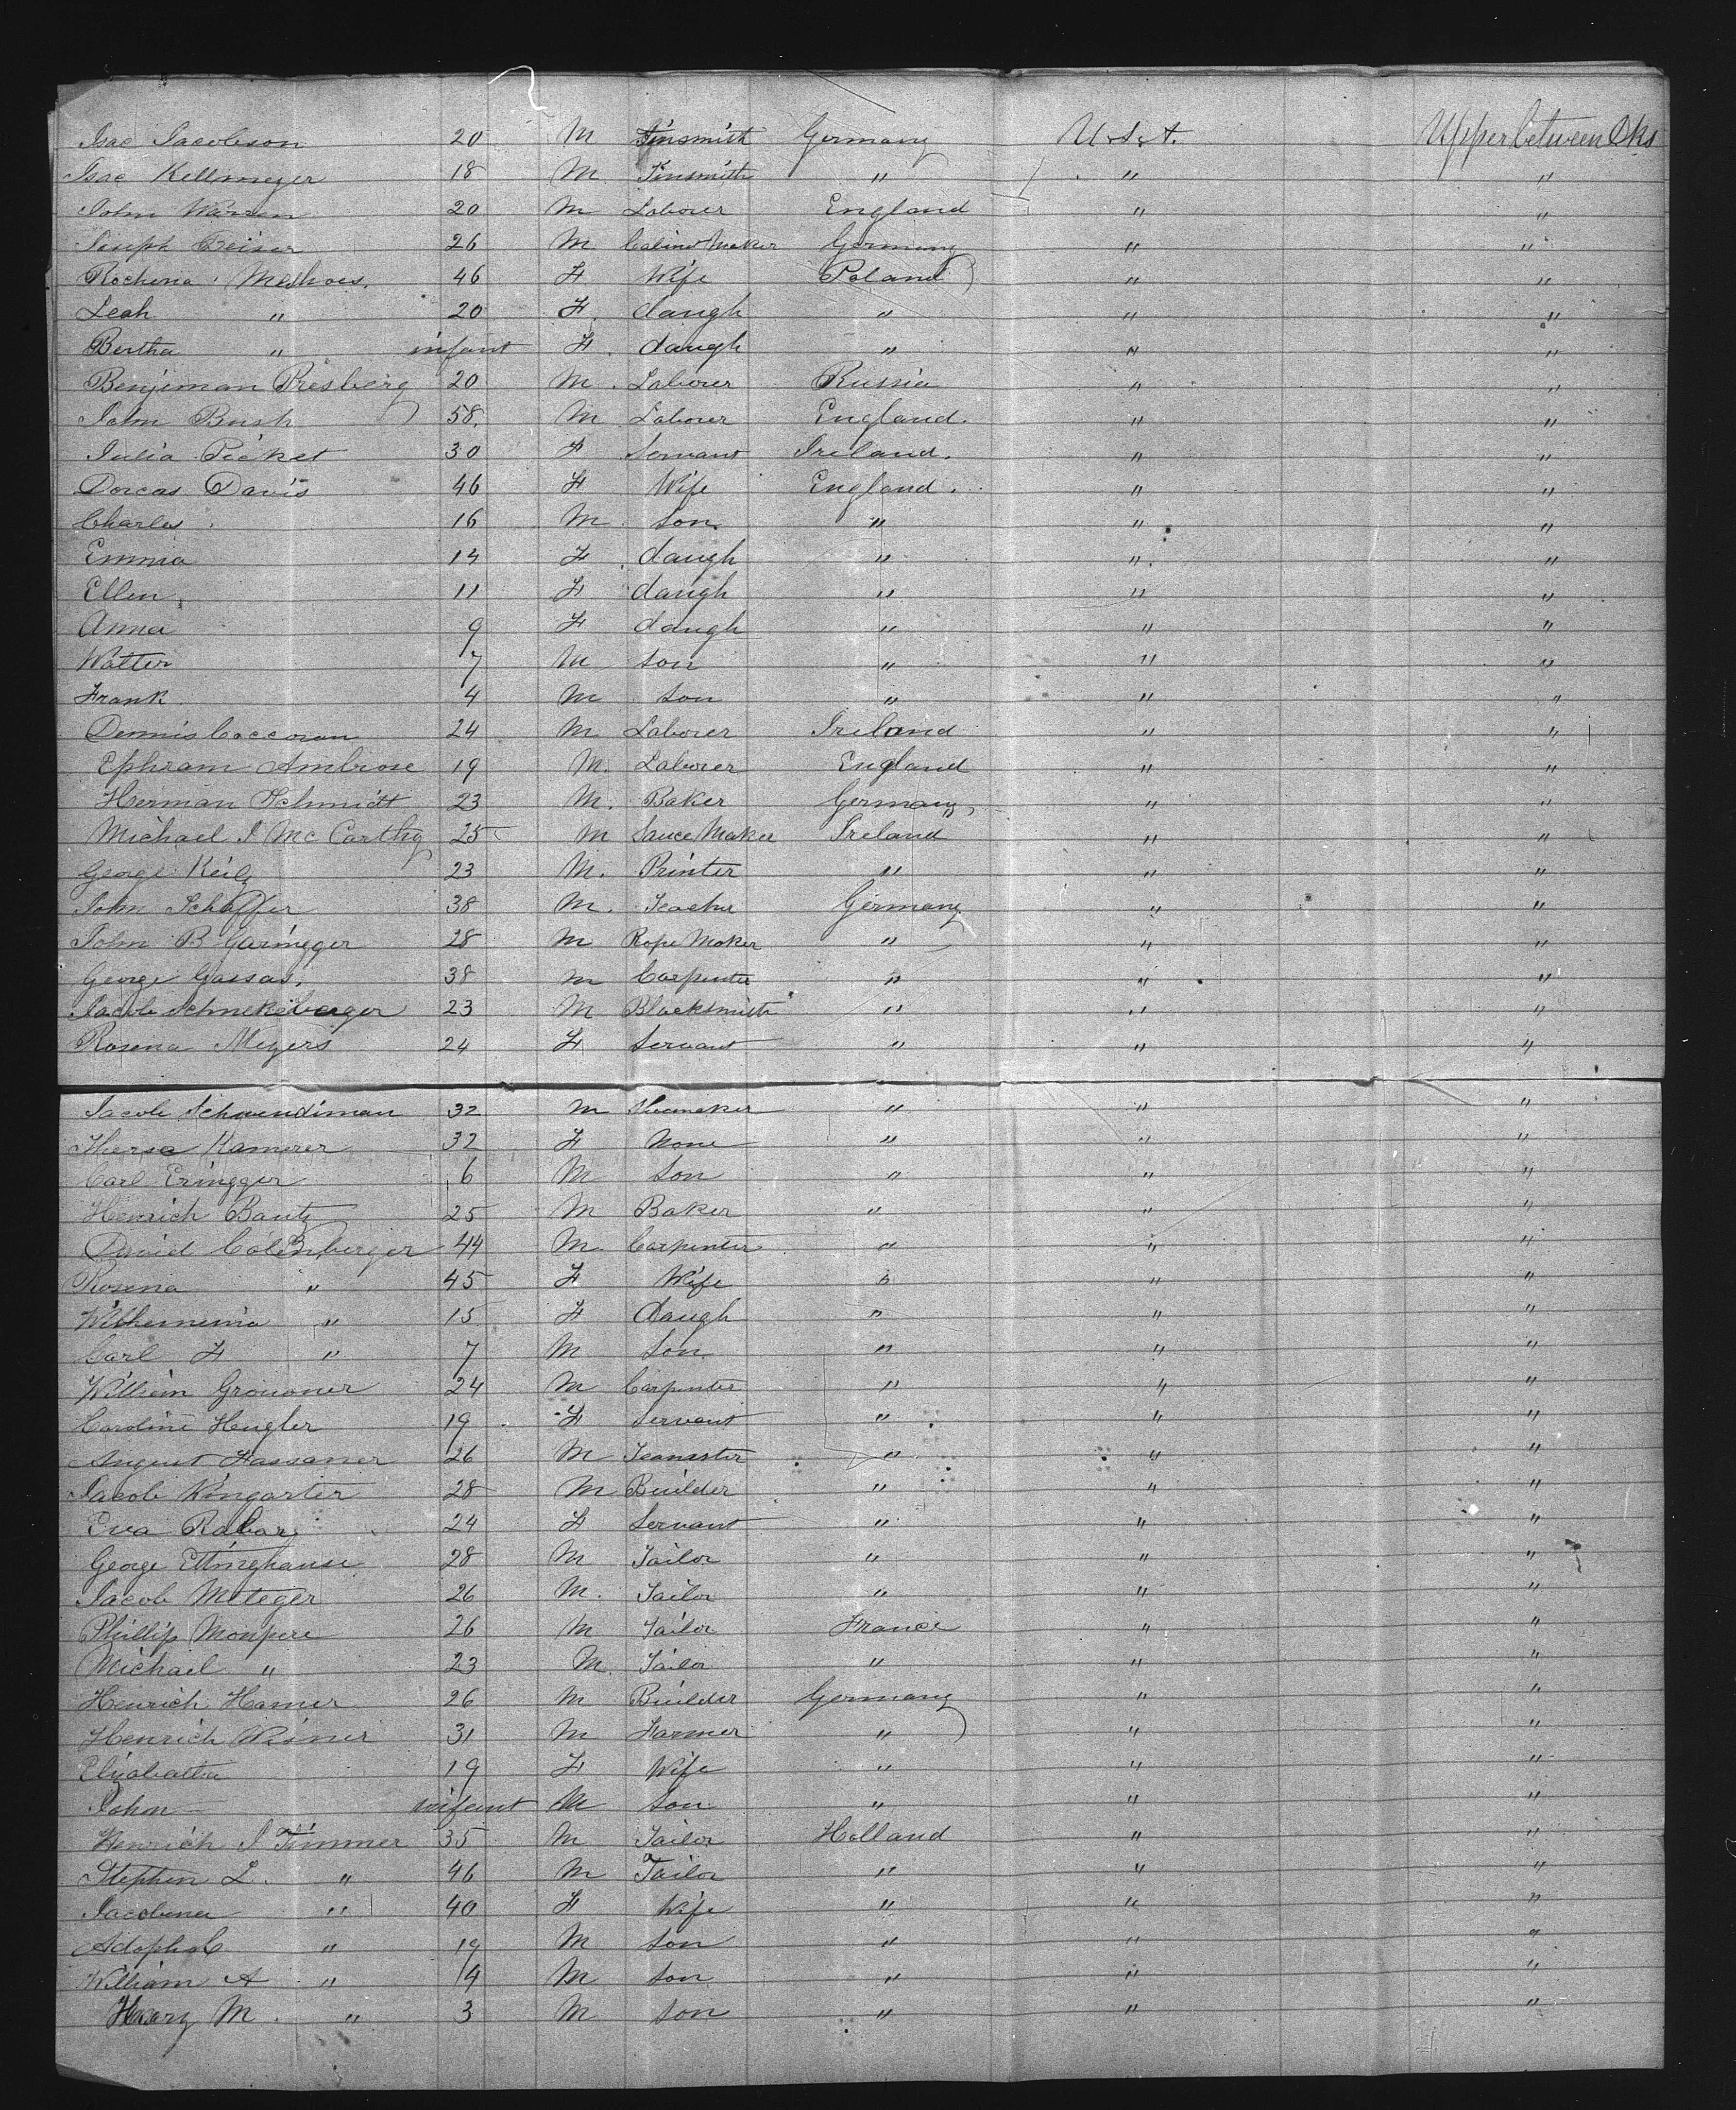 Isac Jacobson 20 M Tinsmith Germany U.S.A. Upper between Dks
Isac Kellmeyer 18 M Tinsmith " " "
John Warren 20 M Laborer England " "
Joseph Preiser 26 M Cabinet Maker Germany " "
Rochena 46 F Wife Poland " "
Leah " 20 F. daugh " " "
Bertha " infant F. daugh " " "
Benjeman Presberg 20 M. Laborer Russia " "
John Bush 58. M Laborer England. " "
Julia Picket 30 F Servant Ireland. " "
Dorcas Davis 46 F Wife England. " "
Charles 16 M son " " "
Emma 14 F daugh " " "
Ellen 11 F daugh " " "
Anna 9 F daugh " " "
Walter 7 M son " " "
Frank 4 M son " " "
Dennis Coccoran 24 M Laborer Ireland " "
Ephram Ambrose 19 M. Laborer England " "
Herman Schmidt 23 M. Baker Germany " "
Michael J Mc Carthy 25 M Sauce Maker Ireland " "
George Keily 23 M. Printer " " "
John Schaffer 38 M. Teacher Germany " "
John B Garinger 28 M Rope Maker " " "
George Gassas. 38 M Carpenter " " "
Jacob Schnekeberger 23 M Blacksmith " " "
Rosena Meyers 24 F Servant " " "
Jacob Schwendiman 32 M Shoemaker " " "
Theresa Kamerer 32 F None " " "
Carl Eringger 6 M Son " " "
Henrich Bautz 25 M Baker " " "
David Calenberger 44 M. Carpenter " " "
Rosena " 45 F Wife " " "
Wilhemina " 15 F daugh " " "
Carl F " 7 M Son " " "
William Grouoner 24 M Carpenter " " "
Caroline Hugler 19 F Servant " " "
August Hassaner 26 M Teamster " " "
Jacob Wingarter 28 M Builder " " "
Eva Rabar 24 F Servant " " "
George Ettinghause 28 M Tailor " " "
Jacob Meteger 26 M. Tailor " " "
Phillip Monpere 26 M Tailor France " "
Michael " 23 M. Tailor " " "
Henrich Hamer 26 M Builder Germany " "
Henrich Wisner 31 M Farmer " " "
Elizabatha 19 F Wife " " "
John infant M Son " " "
Henrich J Timmer 35 M Tailor Holland " "
Stephen L. " 46 M Tailor " " "
Jacobena " 40 F Wife " " "
Adoph C " 19 M Son " " "
William A " 14 M Son " " "
Harry M. " 3 M Son " " "